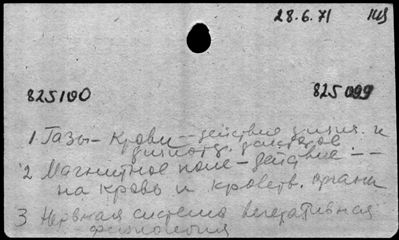 28.6.71
825100 825099
1 Газы - крови -- действие физич. и
факторов
2 Магнитное поле - действие --
на кровь и кроветв. органы
3 Нервная система вегетативная
физиология